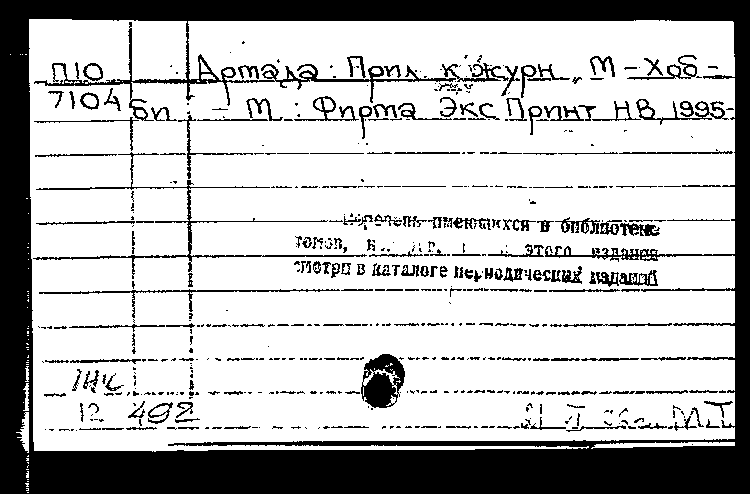 П10 Армада: Прил. к журн. „М-Хоб-
7104 би". - М.: Фирма ЭксПринт НВ, 1995-
Перечень имеющихся в библиотеке
томов, этого издания
смотри в каталоге периодических изданий
12 492
21 II М.Т.